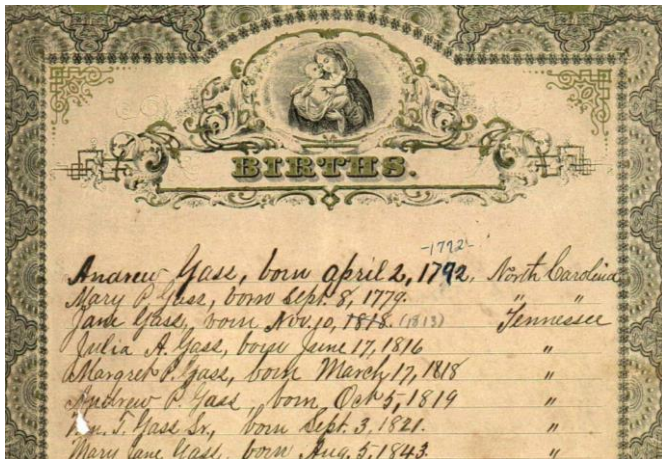 BIRTHS.
-1792-
Andrew Gass, born april 2, 1792, North Carolina
Mary P. Gass, born Sept. 8, 1779. " "
Jane Gass, born Nov. 10, 1818. (1813) Tennessee
Julia A. Gass, born June 17, 1816 "
Margret P. Gass, born March 17, 1818 "
Andrew P. Gass, born, Oct 5, 1819 "
Wm. T. Gass Sr., born Sept. 3, 1821. "
Mary Jane Gass, born Aug. 5, 1843. "